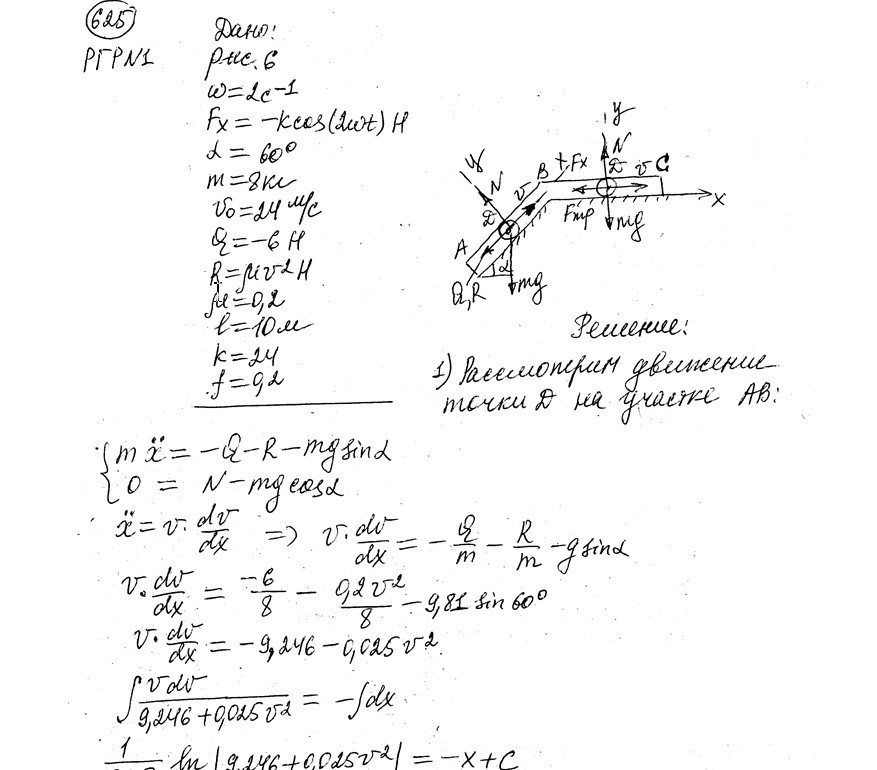 625
РГР№1
Дано:
рис. 6
ω=2c-1
Fx = -kcos(2ωt) Н
α = 60°
m=8кг
v₀=24 м/с
Q=-6 Н
R=μv² Н
μ=0,2
l=10м
k=24
f=0,2
y
N
D
v
B
Fx
y
N
D
v
C
Fтр
mg
x
A
α
Q,R
mg
Решение:
1) Рассмотрим движение
точки D на участке AB:
{ m ẍ = -Q-R-mg sinα
0 = N-mg cosα
ẍ = v· dv/dx => v· dv/dx = - Q/m - R/m - g sinα
v· dv/dx = -6/8 - 0,2v²/8 - 9,81 sin 60°
v· dv/dx = -9,246-0,025v².
∫ vdv/(9,246+0,025v²) = -∫dx
ln |9,246+0,025v²| = -x+C